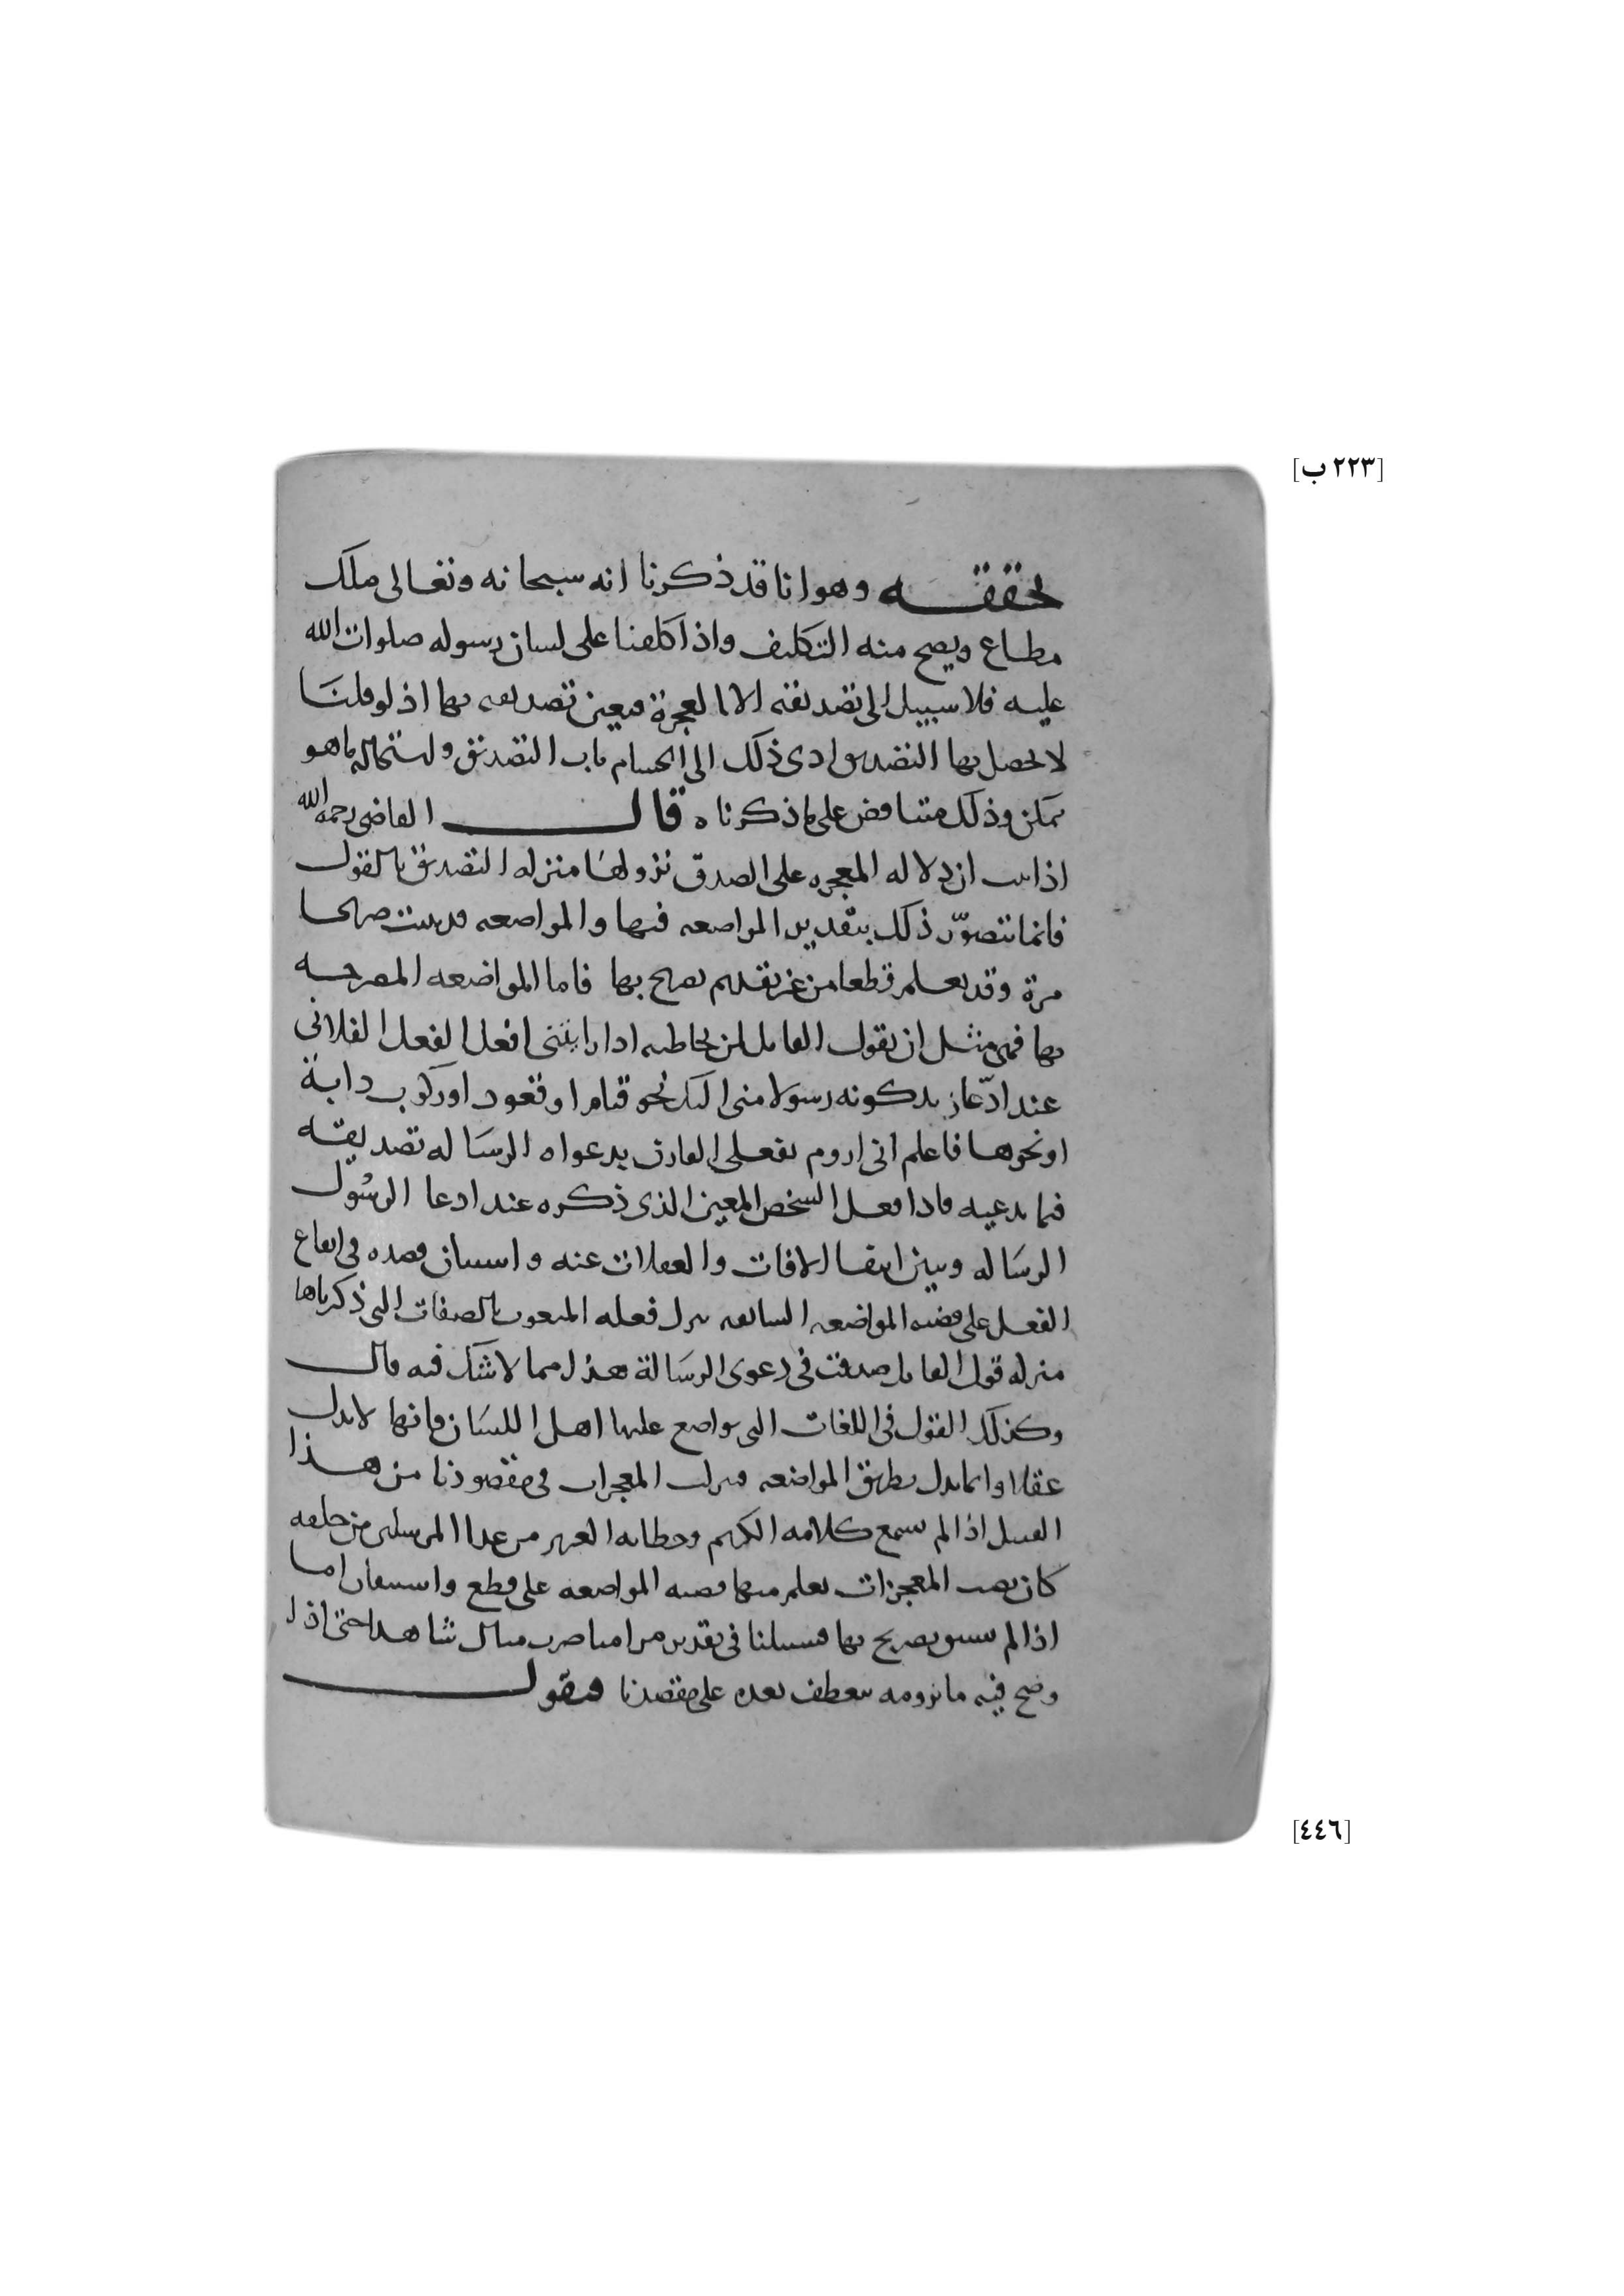 [٢٢٣ ب]
تحققه وهو انا قد ذكرنا انه سبحانه وتعالى ملك
مطاع ويصح منه التكليف واذا كلفنا على لسان رسوله صلوات الله
عليه فلا سبيل الى تصديقه الا بالمعجزة فتعين تصديقه بها اذ لو قلنا
لا يحصل بها التصديق ادى ذلك الى انحسام باب التصديق واستحالة ما هو
ممكن وذلك متناقض على ما ذكرناه قال القاضي رحمه الله
اذا ثبت ان دلاله المعجزه على الصدق نزولها منزله التصديق بالقول
فانما يتصوّر ذلك بتقدير المواضعه فيها والمواضعه قد يثبت صريحا
مرة وقد يعلم قطعا من غير تقديم تصريح بها فاما المواضعه المصرحه
بها فهي مثل ان يقول القايل لمن يخاطبه اذا رايتني افعل الفعل الفلاني
عند ادّعا زيد كونه رسولا مني اليك نحو قيام او قعود او ركوب دابة
او نحوها فاعلم اني اروم بفعلي المقارن بدعواه الرساله تصديقه
فيما يدعيه فاذا فعل الشخص المعين الذي ذكره عند ادعا الرسول
الرساله وتبين انتفا الافات والغفلات عنه واستبان قصده في ايقاع
الفعل على قضيه المواضعه السابقه نزل فعله المنعوت بالصفات التي ذكرناها
منزله قول القايل صدقت في دعوى الرسالة هذا مما لا شك فيه قال
وكذلك القول في اللغات التي تواضع عليها اهل اللسان فانها لا تدل
عقلا وانما تدل بطريق المواضعه فنزلت المعجزات في مقصودنا من هذا
القبيل اذا لم نسمع كلامه الكريم وخطابه العزيز من عدا المرسلين من خلقه
كان نصب المعجزات يعلم منها قضيه المواضعه على قطع واستيقان اما
اذا لم يسبق تصريح بها فسبيلنا في تقدير مرامنا ضرب مثال شاهدا حتى اذا
وضح فيه ما نرومه ننعطف بعده على مقصدنا فنقول
[٤٤٦]